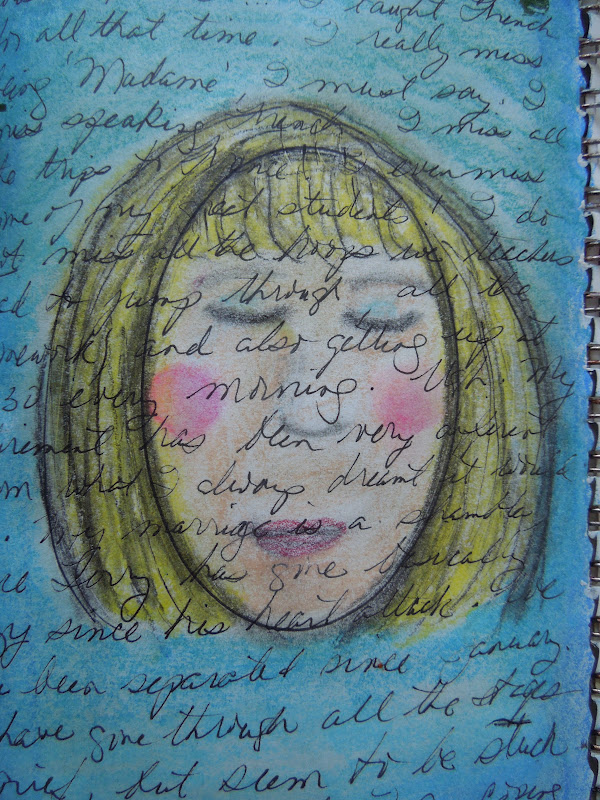 I taught French
all that time. I really miss
'Madame', I must say. I
miss speaking French. I miss all
trips to I even miss
of my students! I do
miss all the hoops we teachers
to jump through all the
and also getting up at
30 every morning. Ugh. My
has been very different
what I always dreamt it would
My marriage is a shambles
has gone basically
since his heart attack. We
been separated since January.
have gone through all the stages
but seem to be stuck